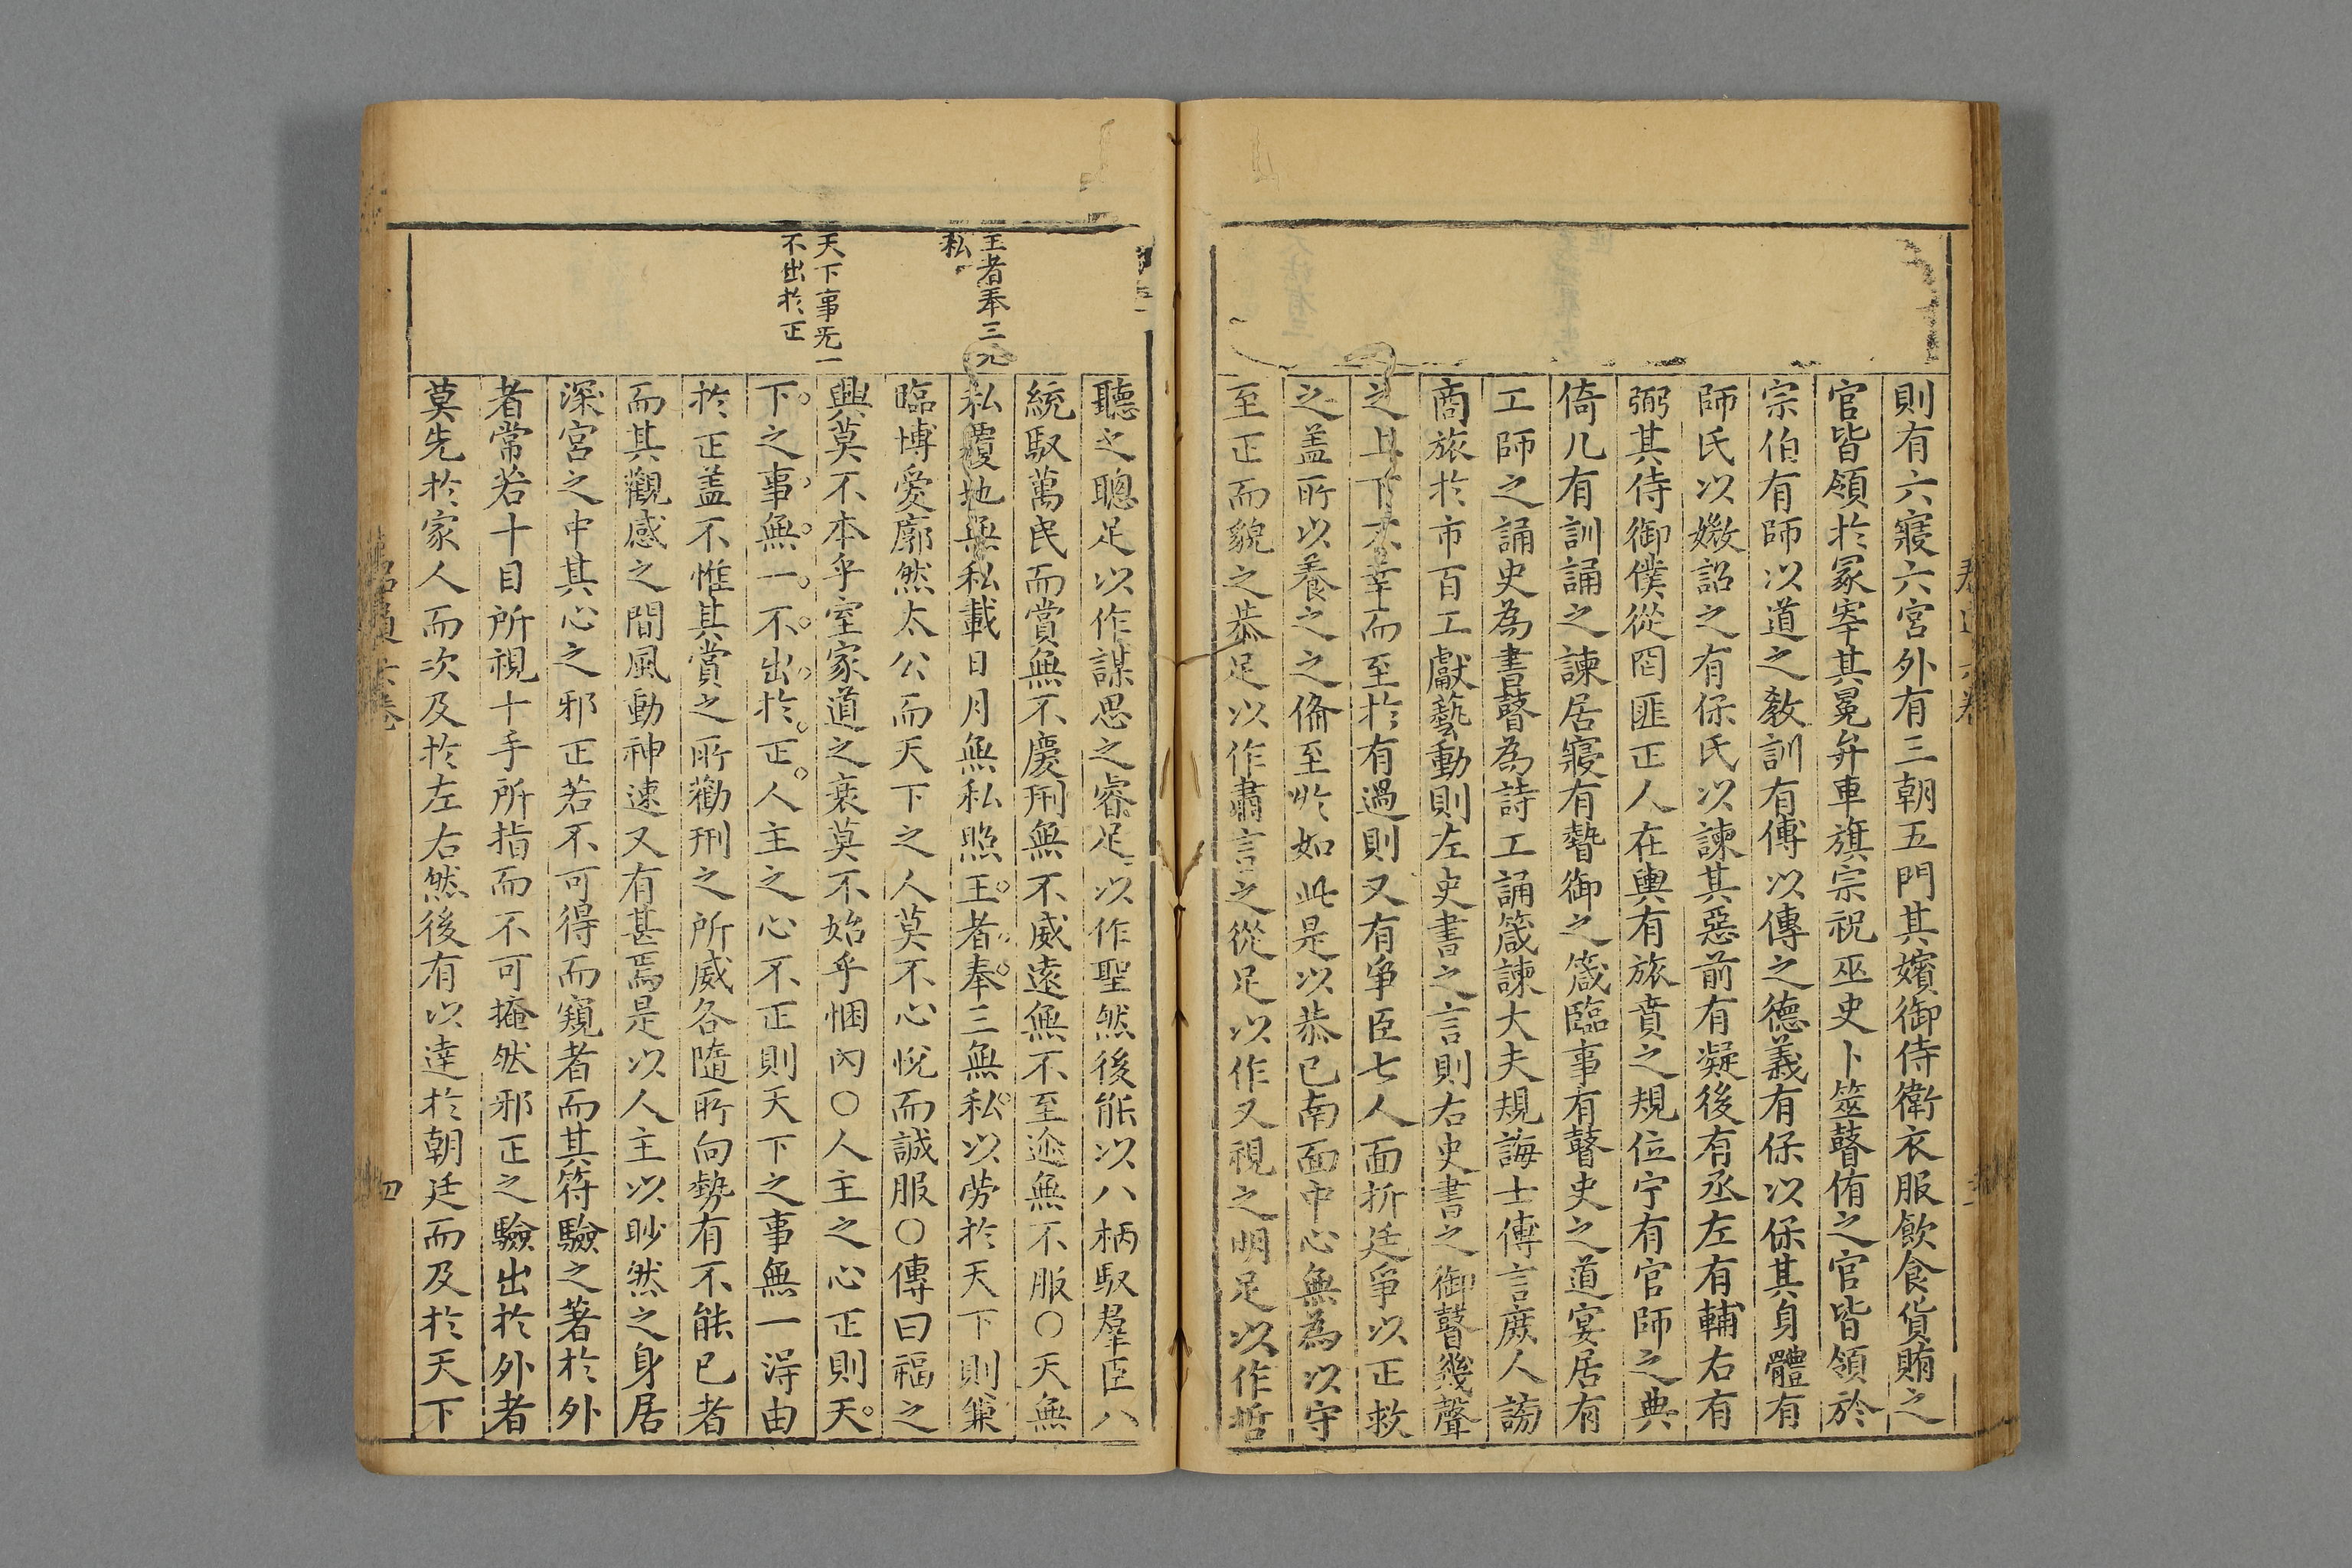 則有六寢六宮外有三朝五門其嬪御侍衛衣服飲食貨賄之
官皆領於冢宰其冕弁車旗宗祝巫史卜筮瞽侑之官皆領於
宗伯有師以道之敎訓有傅以傳之德義有保以保其身體有
師氏以媺詔之有保氏以諫其惡前有凝後有丞左有輔右有
弼其侍御僕從罔匪正人在輿有旅賁之規位宁有官師之典
倚几有訓誦之諫居寢有暬御之箴臨事有瞽史之道宴居有
工師之誦史為書瞽為詩工誦箴諫大夫規誨士傳言庶人謗
商旅於市百工獻藝動則左史書之言則右史書之御瞽幾聲
之上下不幸而至於有過則又有爭臣七人面折廷爭以正救
之盖所以養之之俻至於如此是以恭已南面中心無為以守
至正而貌之恭足以作肅言之從足以作乂視之明足以作哲
聽之聰足以作謀思之睿足以作聖然後能以八柄馭羣臣八
統馭萬民而賞無不慶刑無不威遠無不至邇無不服○天無
私覆地無私載日月無私照王者奉三無私以劳於天下則兼
臨博爱廓然太公而天下之人莫不心悅而誠服○傳曰福之
興莫不本乎室家道之衰莫不始乎梱內○人主之心正則天
下之事無一不出於正人主之心不正則天下之事無一得由
於正盖不惟其賞之所勸刑之所威各隨所向勢有不能已者
而其觀感之間風動神速又有甚焉是以人主以眇然之身居
深宮之中其心之邪正若不可得而窺者而其符驗之著於外
者常若十目所視十手所指而不可掩然邪正之驗出於外者
莫先於家人而次及於左右然後有以達於朝廷而及於天下
王者奉三无
私
天下事无一
不出於正
四